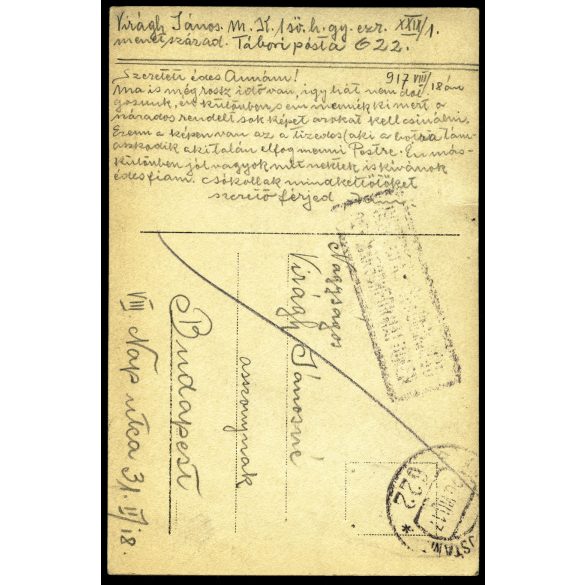 Virágh János. M. K. 1 sö. h. gy. ezr. XXIII/1.
menetszázad. Tábori posta 622.
Szeretett édes Annám! 917 VIII/18án
Ma is még rossz idő van, így hát nem dol
gosunk, de különben sem mennék ki mert a
rendelt sok képet azokat kell csinálni.
Ezem a képen van az a tizedes (aki a botra tám
aszkodik aki talán elfog menni Pestre. Én más-
különben jól vagyok mit nektek is kivánok
édes fiam. csókollak mindkettőtöket
szerető férjed Jani.
Nagyságos
Virágh Jánosné
asszonynak
Budapest
VIII Nap utka 31. II/18.
622